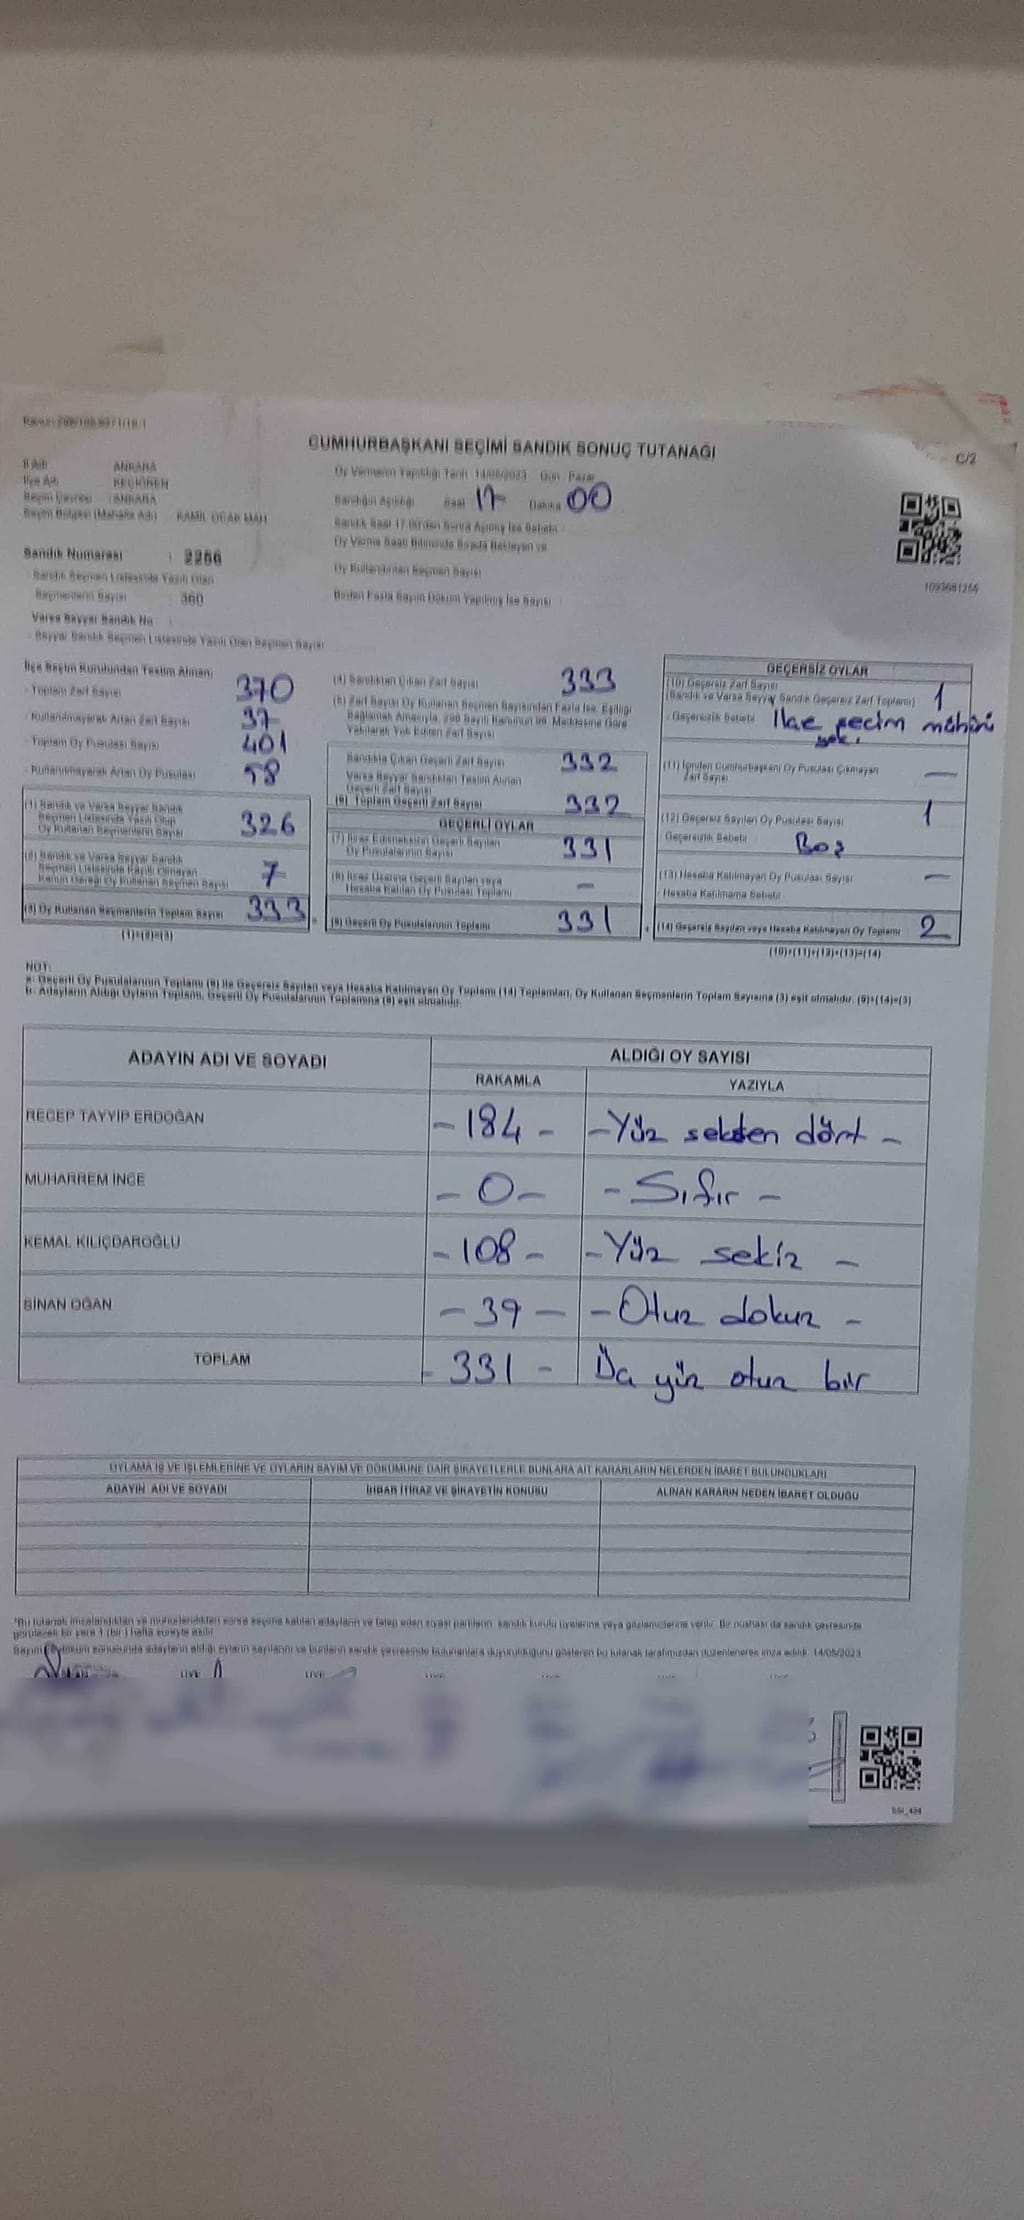 CUMHURBAŞKANI SEÇİMİ SANDIK SONUÇ TUTANAĞI
C/2
İl Adı ANKARA
İlçe Adı KEÇİÖREN
Seçim Çevresi : ANKARA
Seçim Bölgesi (Mahalle Adı) KAMİL OCAK MAH
Sandık Numarası :
Sandık Seçmen Listesinde Yazılı Olan
Seçmenlerin Sayısı : 360
Varsa Seyyar Sandık No
Seyyar Sandık Seçmen Listesinde Yazılı Olan Seçmen Sayısı
Oy Vermenin Yapıldığı Tarih 14/05/2023 Gün Pazar
Sandığın Açıldığı Saat 17 Dakika 00
Sandık Saat 17.00'den Sonra Açılmış İse Sebebi
Oy Verme Saati Bitiminde Sırada Bekleyen ve
Oy Kullandırılan Seçmen Sayısı
Birden Fazla Sayım Döküm Yapılmış İse Sayısı
1093681256
İlçe Seçim Kurulundan Teslim Alınan;
- Toplam Zarf Sayısı 370
- Kullanılmayarak Artan Zarf Sayısı 37
- Toplam Oy Pusulası Sayısı 401
- Kullanılmayarak Artan Oy Pusulası 58
(1) Sandık ve Varsa Seyyar Sandık
Seçmen Listesinde Yazılı Olup
Oy Kullanan Seçmenlerin Sayısı 326
(2) Sandık ve Varsa Seyyar Sandık
Seçmen Listesinde Kayıtlı Olmayan
Kanun Gereği Oy Kullanan Seçmen Sayısı 7
(3) Oy Kullanan Seçmenlerin Toplam Sayısı 333
(1)+(2)=(3)
(4) Sandıktan Çıkan Zarf Sayısı 333
(5) Zarf Sayısı Oy Kullanan Seçmen Sayısından Fazla İse, Eşitliği
Sağlamak Amacıyla, 298 Sayılı Kanunun 98. Maddesine Göre
Yakılarak Yok Edilen Zarf Sayısı
Sandıkta Çıkan Geçerli Zarf Sayısı 332
Varsa Seyyar Sandıktan Teslim Alınan
Geçerli Zarf Sayısı
(6) Toplam Geçerli Zarf Sayısı 332
GEÇERLİ OYLAR
(7) İtiraz Edilmeksizin Geçerli Sayılan
Oy Pusulalarının Sayısı 331
(8) İtiraz Üzerine Geçerli Sayılan veya
Hesaba Katılan Oy Pusulası Toplamı -
(9) Geçerli Oy Pusulalarının Toplamı 331
GEÇERSİZ OYLAR
(10) Geçersiz Zarf Sayısı
(Sandık ve Varsa Seyyar Sandık Geçersiz Zarf Toplamı) 1
- Geçersizlik Sebebi İlçe seçim mührü
yok.
(11) İçinden Cumhurbaşkanı Oy Pusulası Çıkmayan
Zarf Sayısı —
(12) Geçersiz Sayılan Oy Pusulası Sayısı 1
Geçersizlik Sebebi Boş
(13) Hesaba Katılmayan Oy Pusulası Sayısı —
Hesaba Katılmama Sebebi
(14) Geçersiz Sayılan veya Hesaba Katılmayan Oy Toplamı 2
(10)+(11)+(12)+(13)=(14)
NOT:
a- Geçerli Oy Pusulalarının Toplamı (9) ile Geçersiz Sayılan veya Hesaba Katılmayan Oy Toplamı (14) Toplamları, Oy Kullanan Seçmenlerin Toplam Sayısına (3) eşit olmalıdır. (9)+(14)=(3)
b- Adayların Aldığı Oyların Toplamı, Geçerli Oy Pusulalarının Toplamına (9) eşit olmalıdır.
ADAYIN ADI VE SOYADI ALDIĞI OY SAYISI
RAKAMLA YAZIYLA
RECEP TAYYİP ERDOĞAN -184- -Yüz seksen dört-
MUHARREM İNCE -0- -Sıfır-
KEMAL KILIÇDAROĞLU -108- -Yüz sekiz-
SİNAN OĞAN -39- -Otuz dokuz-
TOPLAM -331- Üç yüz otuz bir
OYLAMA İŞ VE İŞLEMLERİNE VE OYLARIN SAYIM VE DÖKÜMÜNE DAİR ŞİKAYETLERLE BUNLARA AİT KARARLARIN NELERDEN İBARET BULUNDUKLARI
ADAYIN ADI VE SOYADI İHBAR İTİRAZ VE ŞİKAYETİN KONUSU ALINAN KARARIN NEDEN İBARET OLDUĞU
*Bu tutanak imzalandıktan ve mühürlendikten sonra seçime katılan adayların ve talep eden siyasi partilerin sandık kurulu üyelerine veya gözlemcilerine verilir. Bir nüshası da sandık çevresinde
görülecek bir yere 1 (bir) hafta süreyle asılır.
Sayım ve döküm sonucunda adayların aldığı oyların sayılarını ve bunların sandık çevresinde bulunanlara duyurulduğunu gösteren bu tutanak tarafımızdan düzenlenerek imza edildi. 14/05/2023